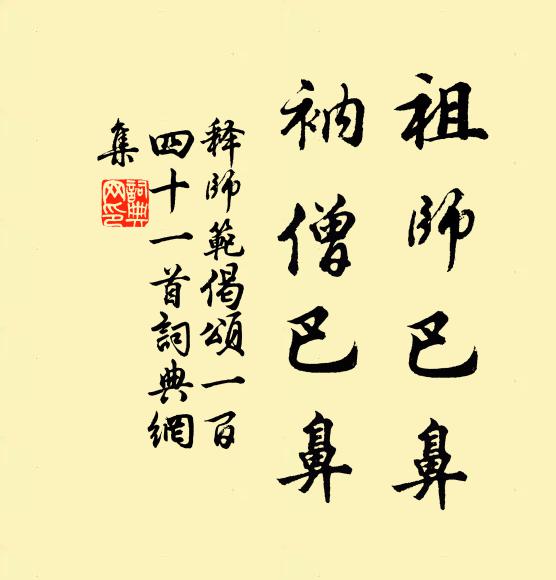 祖師巴鼻
衲僧巴鼻
释師範偈頌一百
四十一首詞典網
集
詞典
网印